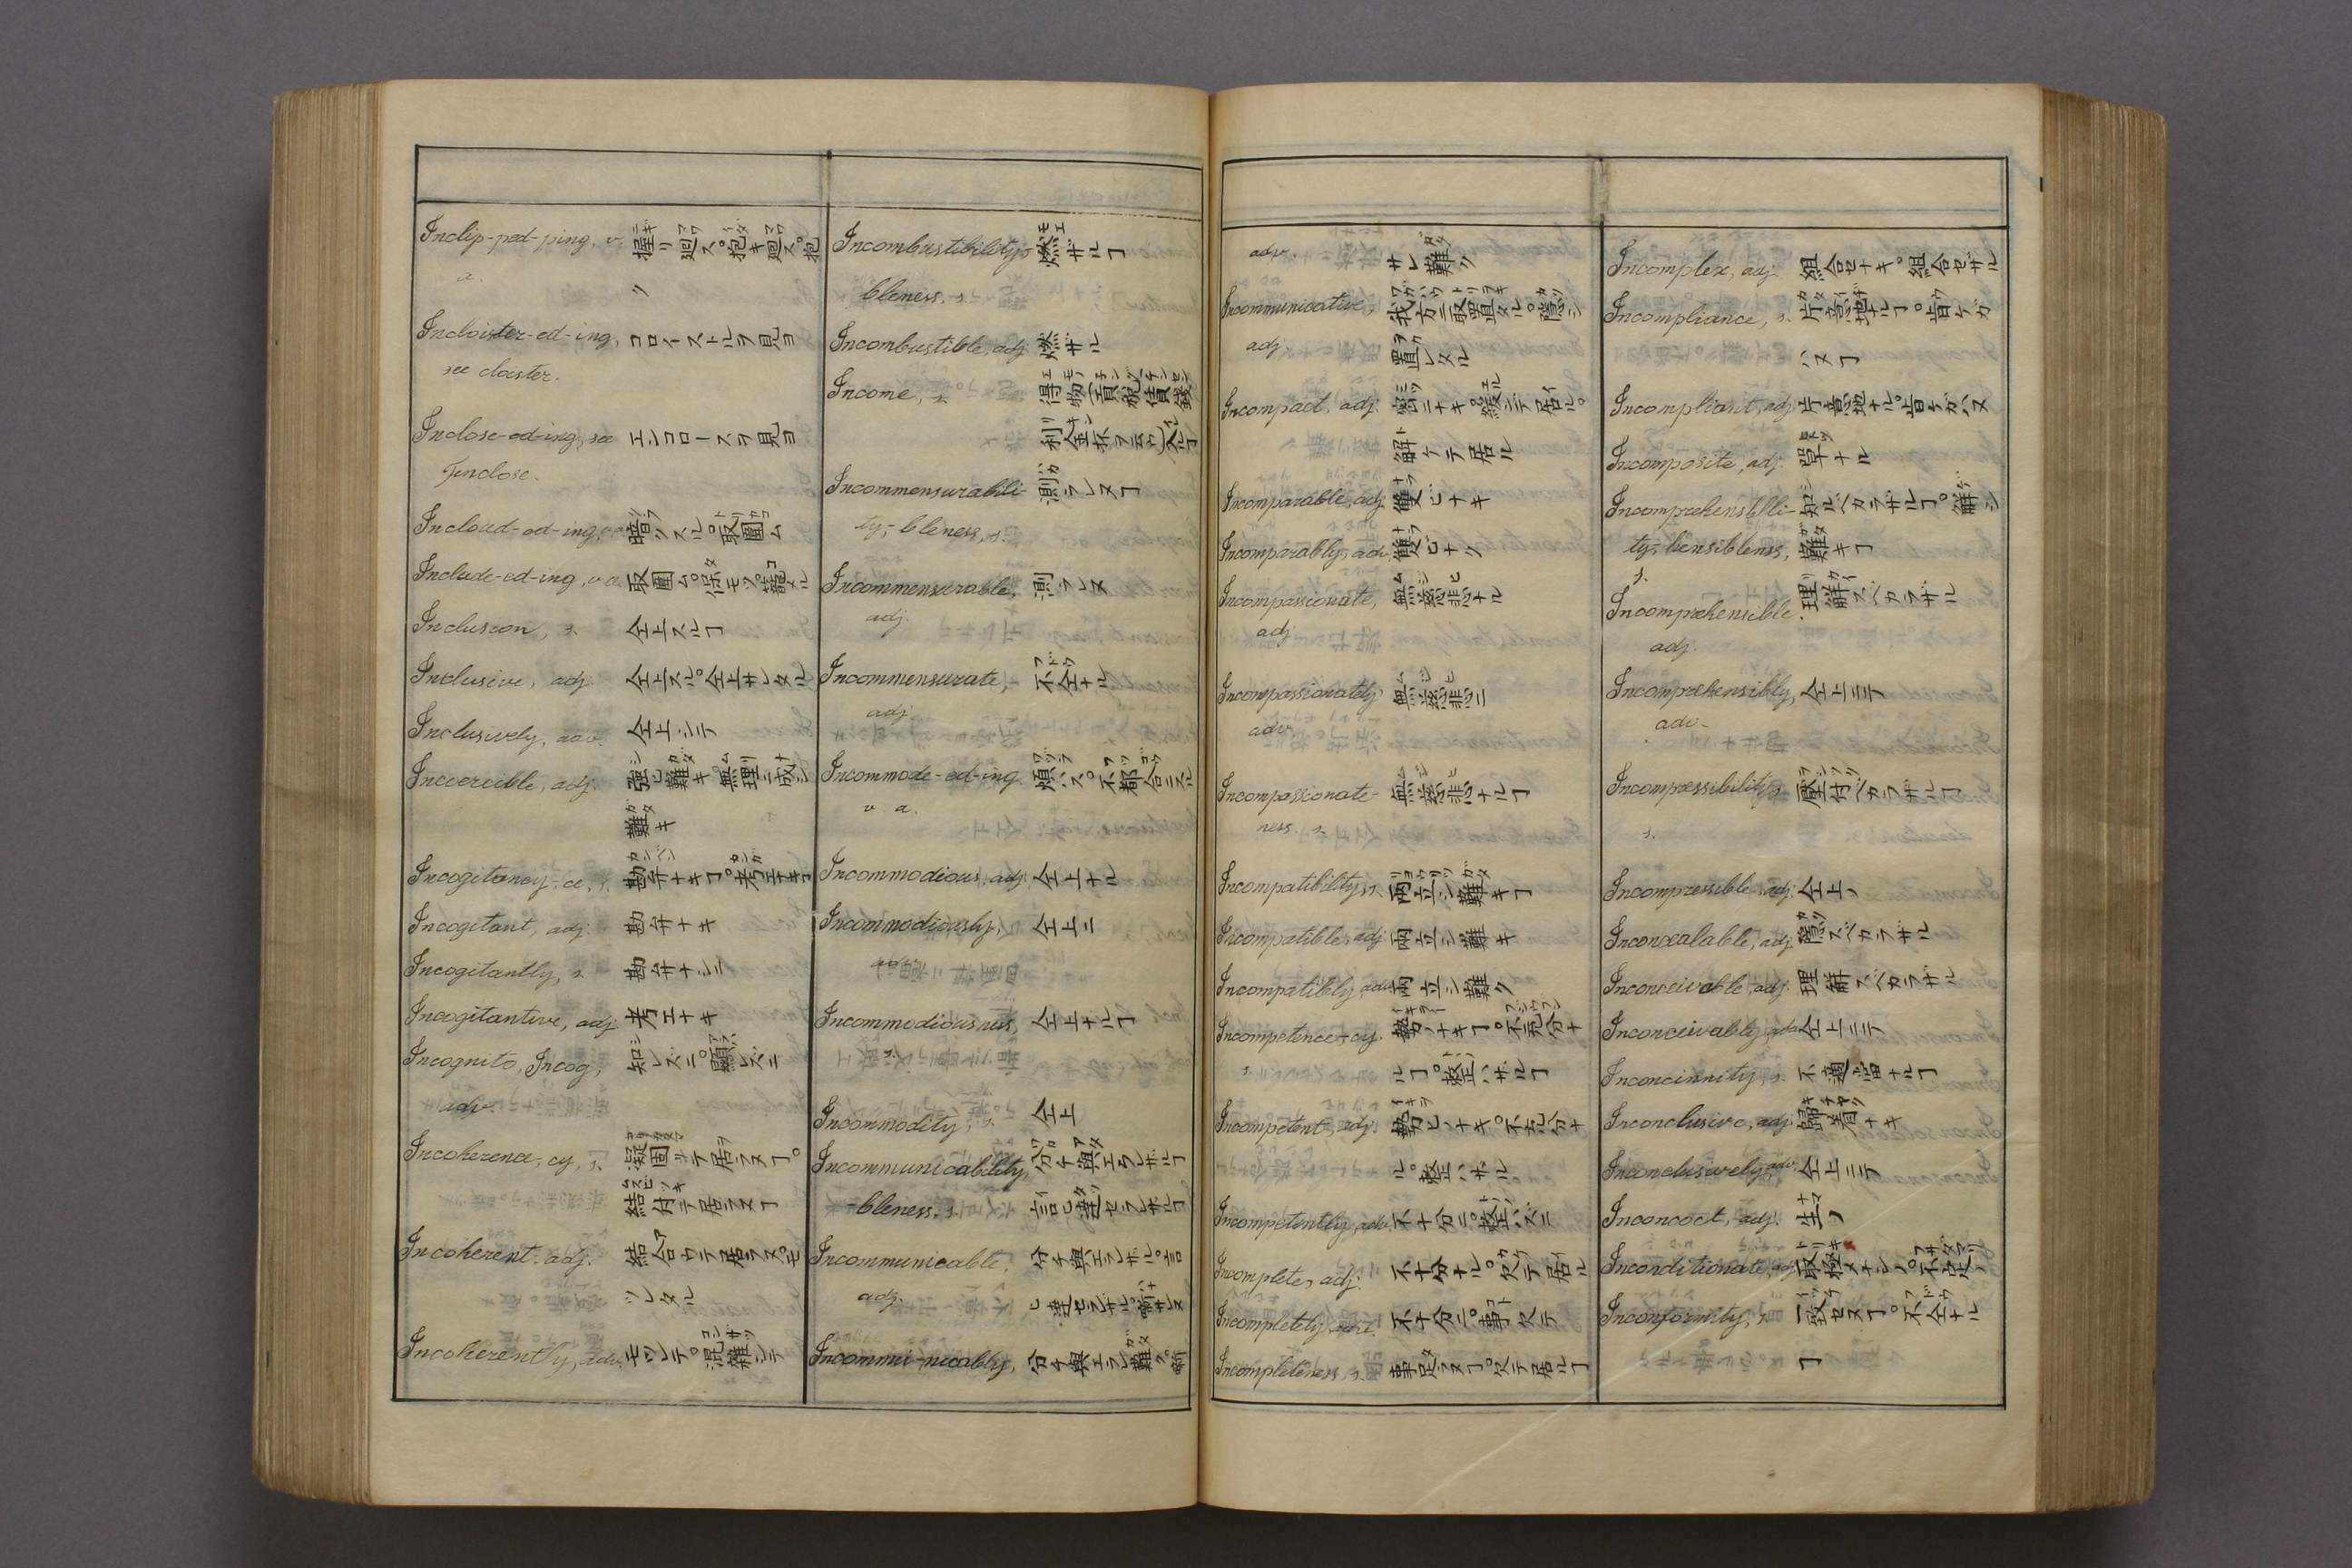 Inclip-ped-ping, v. 握リ廻ス。抱キ廻ス。抱
a. ク
Incloister-ed-ing, コローストルヲ見ヨ
see cloister.
Inclose-ed-ing, see エンコロースヲ見ヨ
Jenclose.
Incloud-ed-ing, v.a. 暗クスル。取圍ム
Include-ed-ing, v.a. 取圍ム。保モツ。籠メル
Inclusion, s. 仝上スルヿ
Inclusive, adj. 仝上スル。仝上サレタル
Inclusively, adv. 仝上シテ
Incoercible, adj. 強ヒ難キ。無理ニ成シ
難キ
Incogitancy-ce, s. 勘弁ナキヿ。考エナキヿ
Incogitant, adj. 勘弁ナキ
Incogitantly, s. 勘弁ナシニ
Incogitantive, adj. 考エナキ
Incognito, Incog, 知レズニ。顯レズニ
adv.
Incoherence, cy, s. 凝固リテ居ラヌヿ。
結付テ居ラヌヿ
Incoherent. adj. 結合ウテ居ラヌ。モ
ツレタル
Incoherently, adv. モツレテ。混雜シテ
Incombustibility, 燃ザルヿ
bleness. s.
Incombustible, adj. 燃ザル
Income, s. 得物(貢税賃錢
利金抔ヲ云也)入ルヿ
Incommensurabili- 測ラレヌヿ
ty;-bleness, s.
Incommensurable, 測ラレヌ
adj.
Incommensurate, 不仝ナル
adj.
Incommode-ed-ing 煩ハス。不都合ニスル
v. a.
Incommodious, adj. 仝上ナル
Incommodiously, 仝上ニ
adv.
Incommodiousness, 仝上ナルヿ
s.
Incommodity, s. 仝上
Incommunicability, 分チ與エラレザルヿ
-bleness. s. 言ヒ達セラレザルヿ
Incommunicable, 分チ與エラレザル。言
adj. ヒ達セラレザル。噺サレヌ
Incommu-nicably, 分チ與エラレ難ク。噺
adv. サレ難ク
Incommunicative, 我方ニ取置タル。隱シ
adj. 置レタル
Incompact, adj. 密ニナキ。緩ンデ居ル。
解ケテ居ル
Incomparable, adj. 雙ビナキ
Incomparably, adv. 雙ビナク
Incompassionate, 無慈悲ナル
adj.
Incompassionately 無慈悲ニ
adv.
Incompassionate- 無慈悲ナルヿ
ness. s.
Incompatibility, s. 兩立シ難キヿ
Incompatible, adj. 兩立シ難キ
Incompatibly, adv. 兩立シ難ク
Incompetence-cy. 勢ヒナキヿ。不充分ナ
s. ルヿ。整ハザルヿ
Incompetent, adj. 勢ヒナキ。不充分ナ
ル。整ハザル
Incompetently, adv. 不十分ニ。整ハズニ
Incomplete, adj. 不十分ナル。欠テ居ル
Incompletely, adv. 不十分ニ。事欠テ
Incompleteness, s. 事足ラヌヿ。欠テ居ルヿ
Incomplex, adj. 組合セナキ。組合セザル
Incompliance, s. 片意地ナルヿ。肯ケガ
ハヌヿ
Incompliant, adj. 片意地ナル。肯ケガハヌ
Incomposite, adj. 單ナル
Incomprehensibili- 知ルベカラザルヿ。解シ
ty;-hensibleness, 難キヿ
s.
Incomprehensible. 理解スベカラザル
adj.
Incomprehensibly, 仝上ニテ
adv.
Incompressibility, 壓付ベカラザルヿ
s.
Incompressible, adj. 仝上ノ
Inconcealable, adj. 隱スベカラザル
Inconceivable, adj. 理解スベカラザル
Inconceivably, adv. 仝上ニテ
Inconcinnity, s. 不適當ナルヿ
Inconclusive, adj. 歸着ナキ
Inconclusively, adv. 仝上ニテ
Inconcoct, adj. 生ノ
Inconditionate, adj. 取極メナシノ。不定ノ
Inconformity, s. 一致セヌヿ。不仝ナル
ヿ